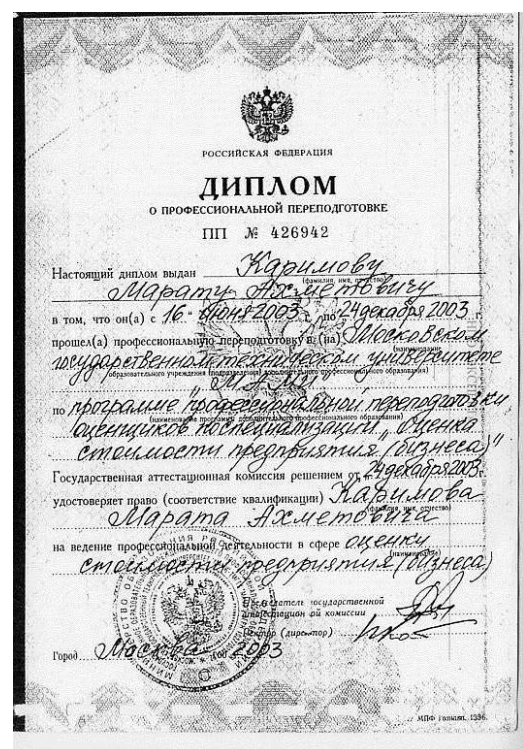 РОССИЙСКАЯ ФЕДЕРАЦИЯ
ДИПЛОМ
О ПРОФЕССИОНАЛЬНОЙ ПЕРЕПОДГОТОВКЕ
ПП № 426942
Настоящий диплом выдан Каримову
(фамилия, имя, отчество)
Марату Ахметовичу
в том, что он(а) с 16 июня 2003 г. по 24 декабря 2003 г.
прошел(а) профессиональную переподготовку в (на) Московском
(наименование
государственном техническом университете
образовательного учреждения (подразделения) дополнительного профессионального образования)
"МАМИ"
по программе профессиональной переподготовки
(наименование программы дополнительного профессионального образования)
оценщиков по специализации „Оценка
стоимости предприятия (бизнеса)"
Государственная аттестационная комиссия решением от 24 декабря 2003г.
удостоверяет право (соответствие квалификации) Каримова
(фамилия, имя, отчество)
Марата Ахметовича
на ведение профессиональной деятельности в сфере оценки
(наименование)
стоимости предприятия (бизнеса)
Председатель государственной
аттестационной комиссии
Ректор (директор)
Город Москва год 2003